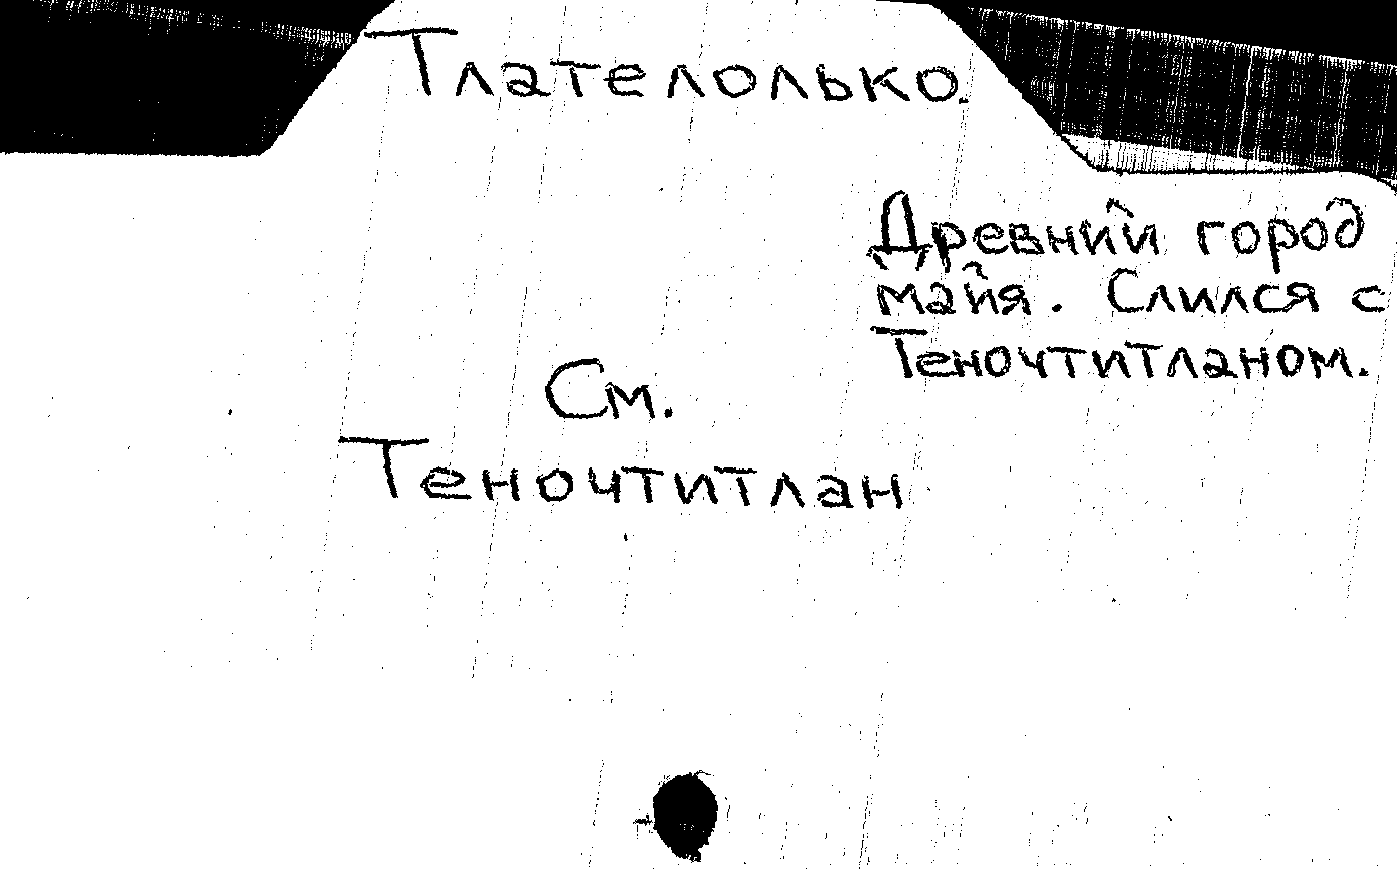 Тлателолько.
Древний город
майя. Слился с
Теночтитланом.
См.
Теночтитлан